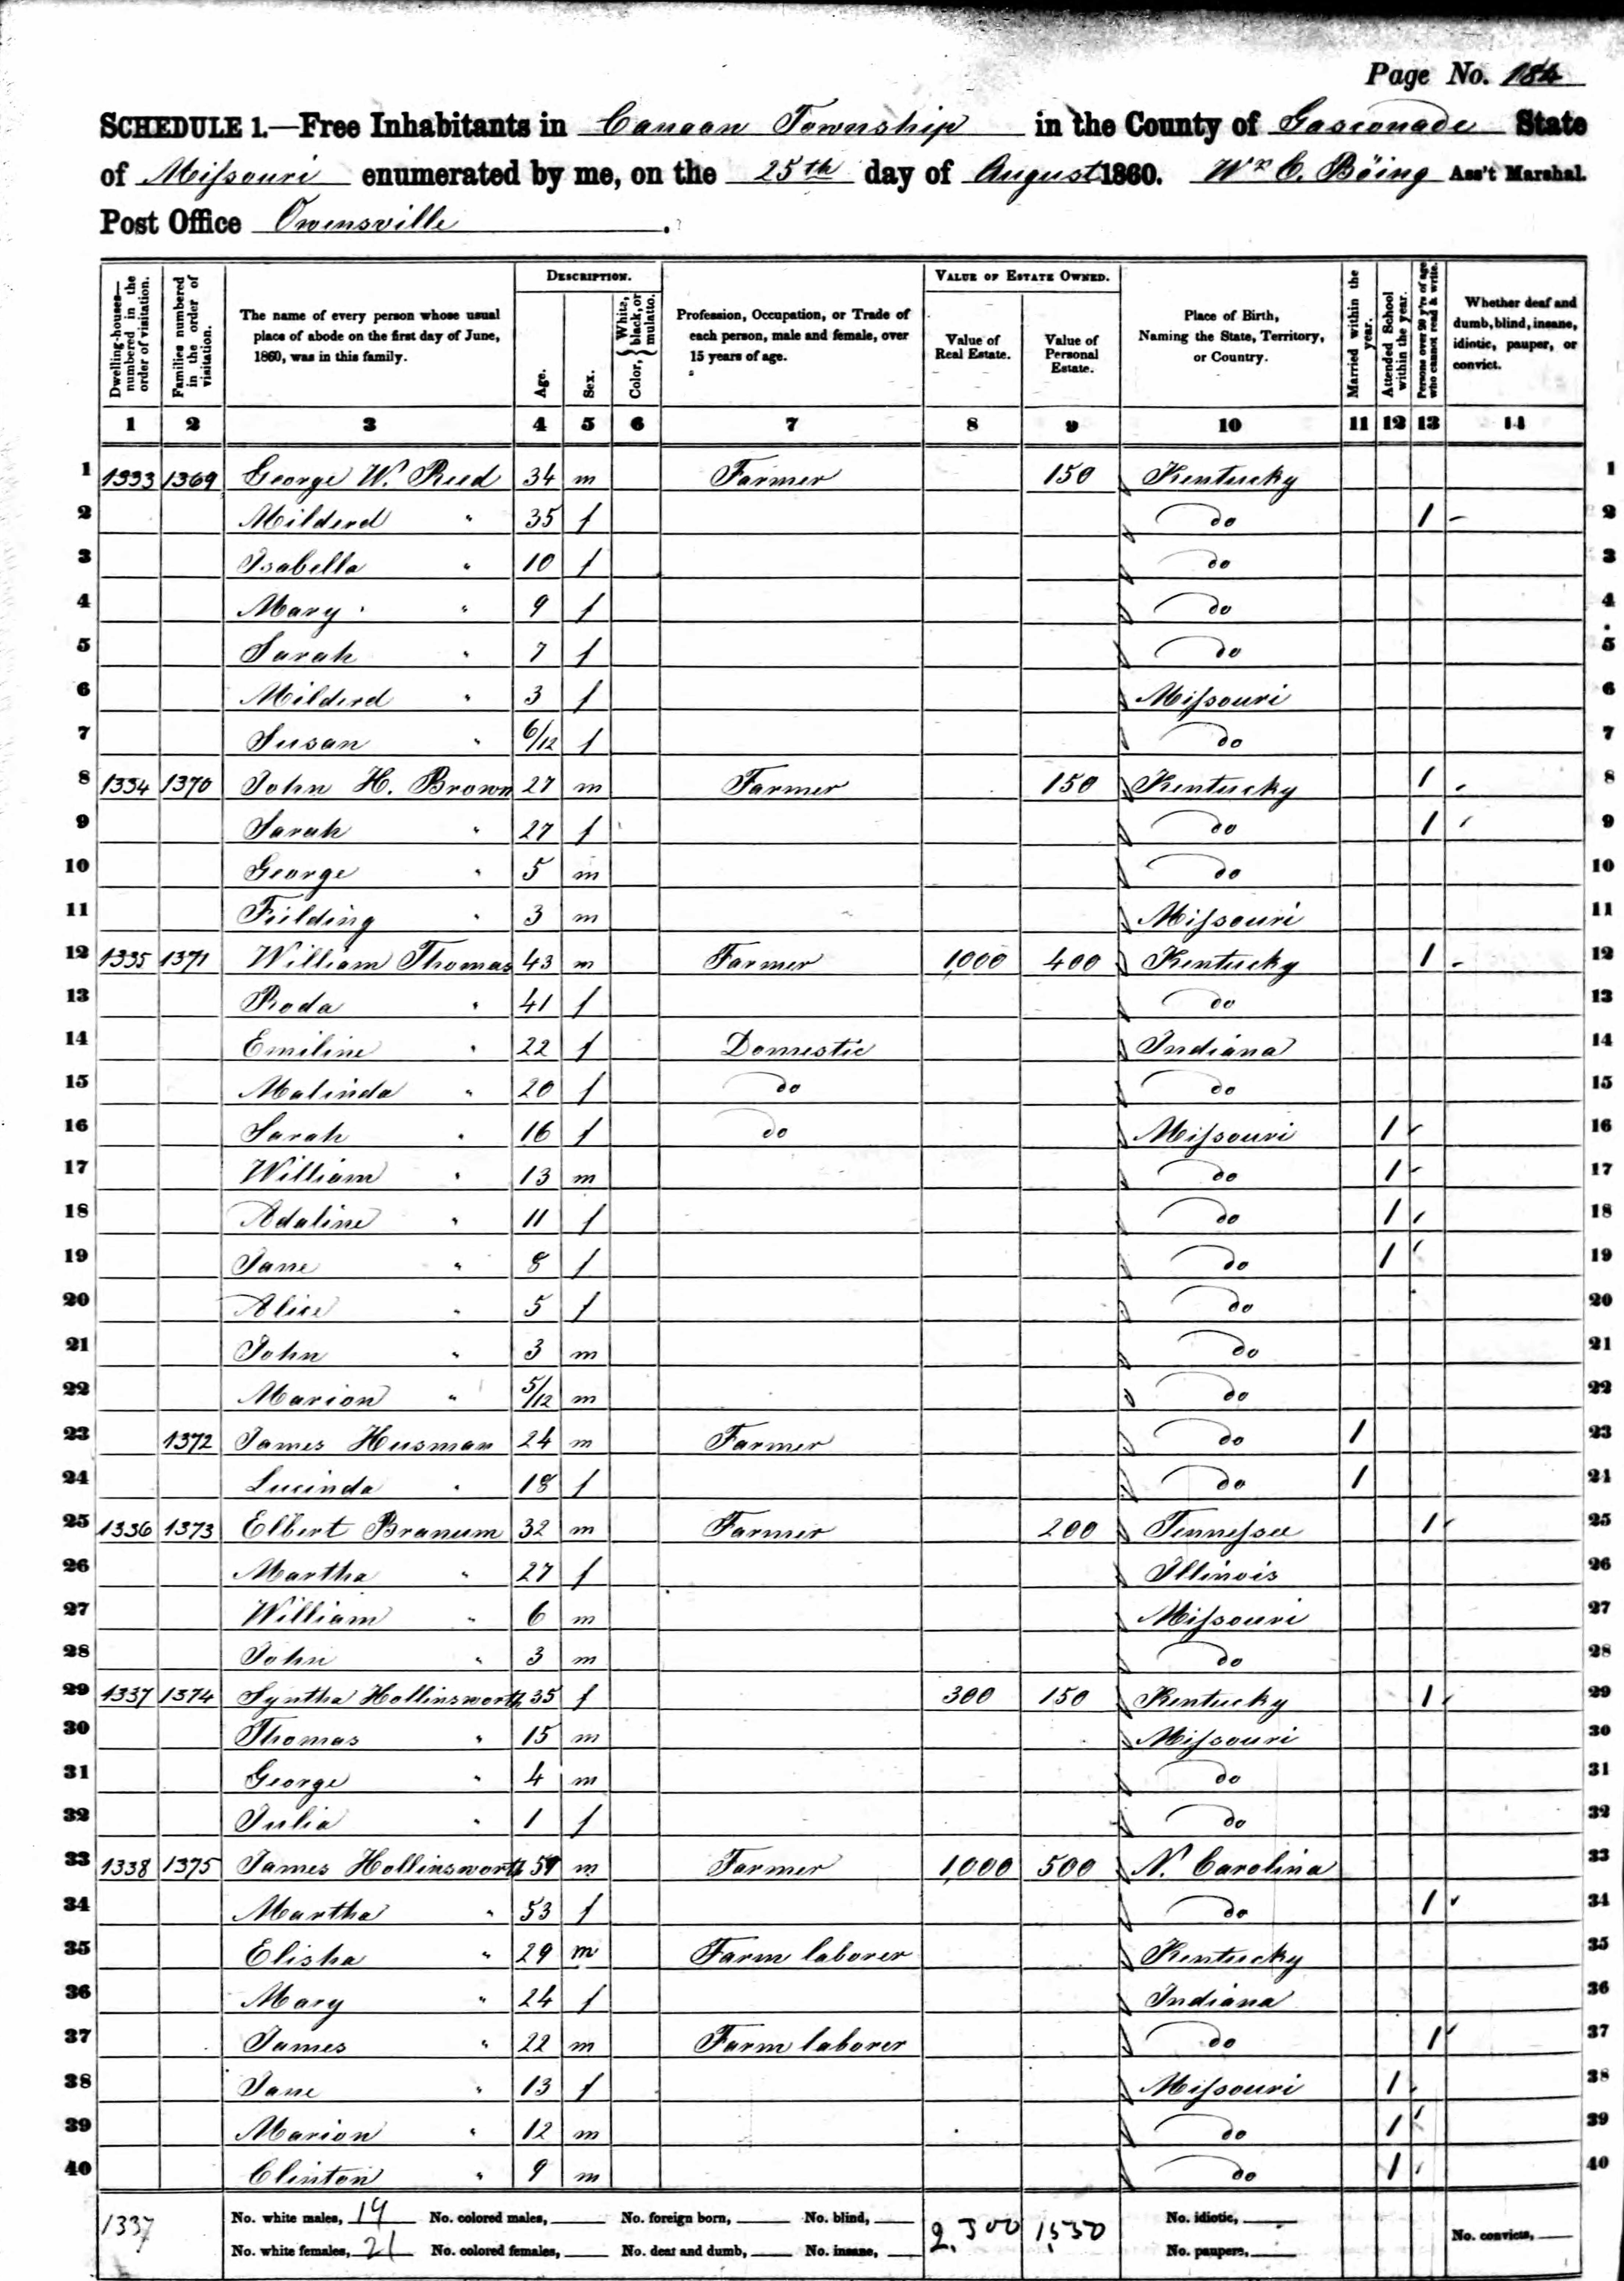 Page No. 184
SCHEDULE 1.—Free Inhabitants in Canaan Township in the County of Gasconade State
of Missouri enumerated by me, on the 25th day of August 1860. Wm C. Böing Ass't Marshal.
Post Office Owensville.
Dwelling-houses—numbered in the order of visitation. Families numbered in the order of visitation. The name of every person whose usual place of abode on the first day of June, 1860, was in this family. DESCRIPTION. Age. Sex. Color, { White, black, or mulatto. Profession, Occupation, or Trade of each person, male and female, over 15 years of age. VALUE OF ESTATE OWNED. Value of Real Estate. Value of Personal Estate. Place of Birth, Naming the State, Territory, or Country. Married within the year. Attended School within the year. Persons over 20 y'rs of age who cannot read & write. Whether deaf and dumb, blind, insane, idiotic, pauper, or convict.
1 2 3 4 5 6 7 8 9 10 11 12 13 14
1 1333 1369 George W. Reed 34 m Farmer 150 Kentucky 1
2 Milderd " 35 f do 1 2
3 Isabella " 10 f do 3
4 Mary " 9 f do 4
5 Sarah " 7 f do 5
6 Milderd " 3 f Missouri 6
7 Susan " 6/12 f do 7
8 1334 1370 John H. Brown 27 m Farmer 150 Kentucky 1 8
9 Sarah " 27 f do 1 9
10 George " 5 m do 10
11 Fielding " 3 m Missouri 11
12 1335 1371 William Thomas 43 m Farmer 1,000 400 Kentucky 1 12
13 Roda " 41 f do 13
14 Emiline " 22 f Domestic Indiana 14
15 Malinda " 20 f do do 15
16 Sarah " 16 f do Missouri 1 16
17 William " 13 m do 1 17
18 Adaline " 11 f do 1 18
19 Jane " 8 f do 1 19
20 Alice " 5 f do 20
21 John " 3 m do 21
22 Marion " 5/12 m do 22
23 1372 James Husman 24 m Farmer do 1 23
24 Lucinda " 18 f do 1 24
25 1336 1373 Elbert Branum 32 m Farmer 200 Tennessee 1 25
26 Martha " 27 f Illinois 26
27 William " 6 m Missouri 27
28 John " 3 m do 28
29 1337 1374 Syntha Hollinsworth 35 f 300 150 Kentucky 1 29
30 Thomas " 15 m Missouri 30
31 George " 4 m do 31
32 Julia " 1 f do 32
33 1338 1375 James Hollinsworth 59 m Farmer 1,000 500 N. Carolina 33
34 Martha " 53 f do 1 34
35 Elisha " 29 m Farm laborer Kentucky 35
36 Mary " 24 f Indiana 36
37 James " 22 m Farm laborer do 1 37
38 Jane " 13 f Missouri 1 38
39 Marion " 12 m do 1 39
40 Clinton " 9 m do 1 40
1337 No. white males, 19 No. colored males, No. foreign born, No. blind, 2,300 1,550 No. idiotic,
No. white females, 21 No. colored females, No. deaf and dumb, No. insane, No. paupers, No. convicts,